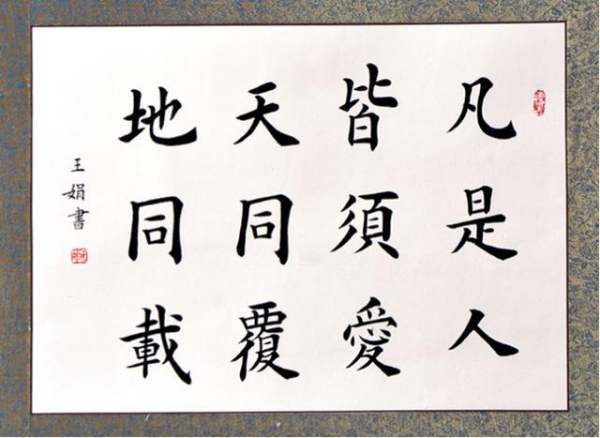 凡是人
皆須愛
天同覆
地同載
王娟書